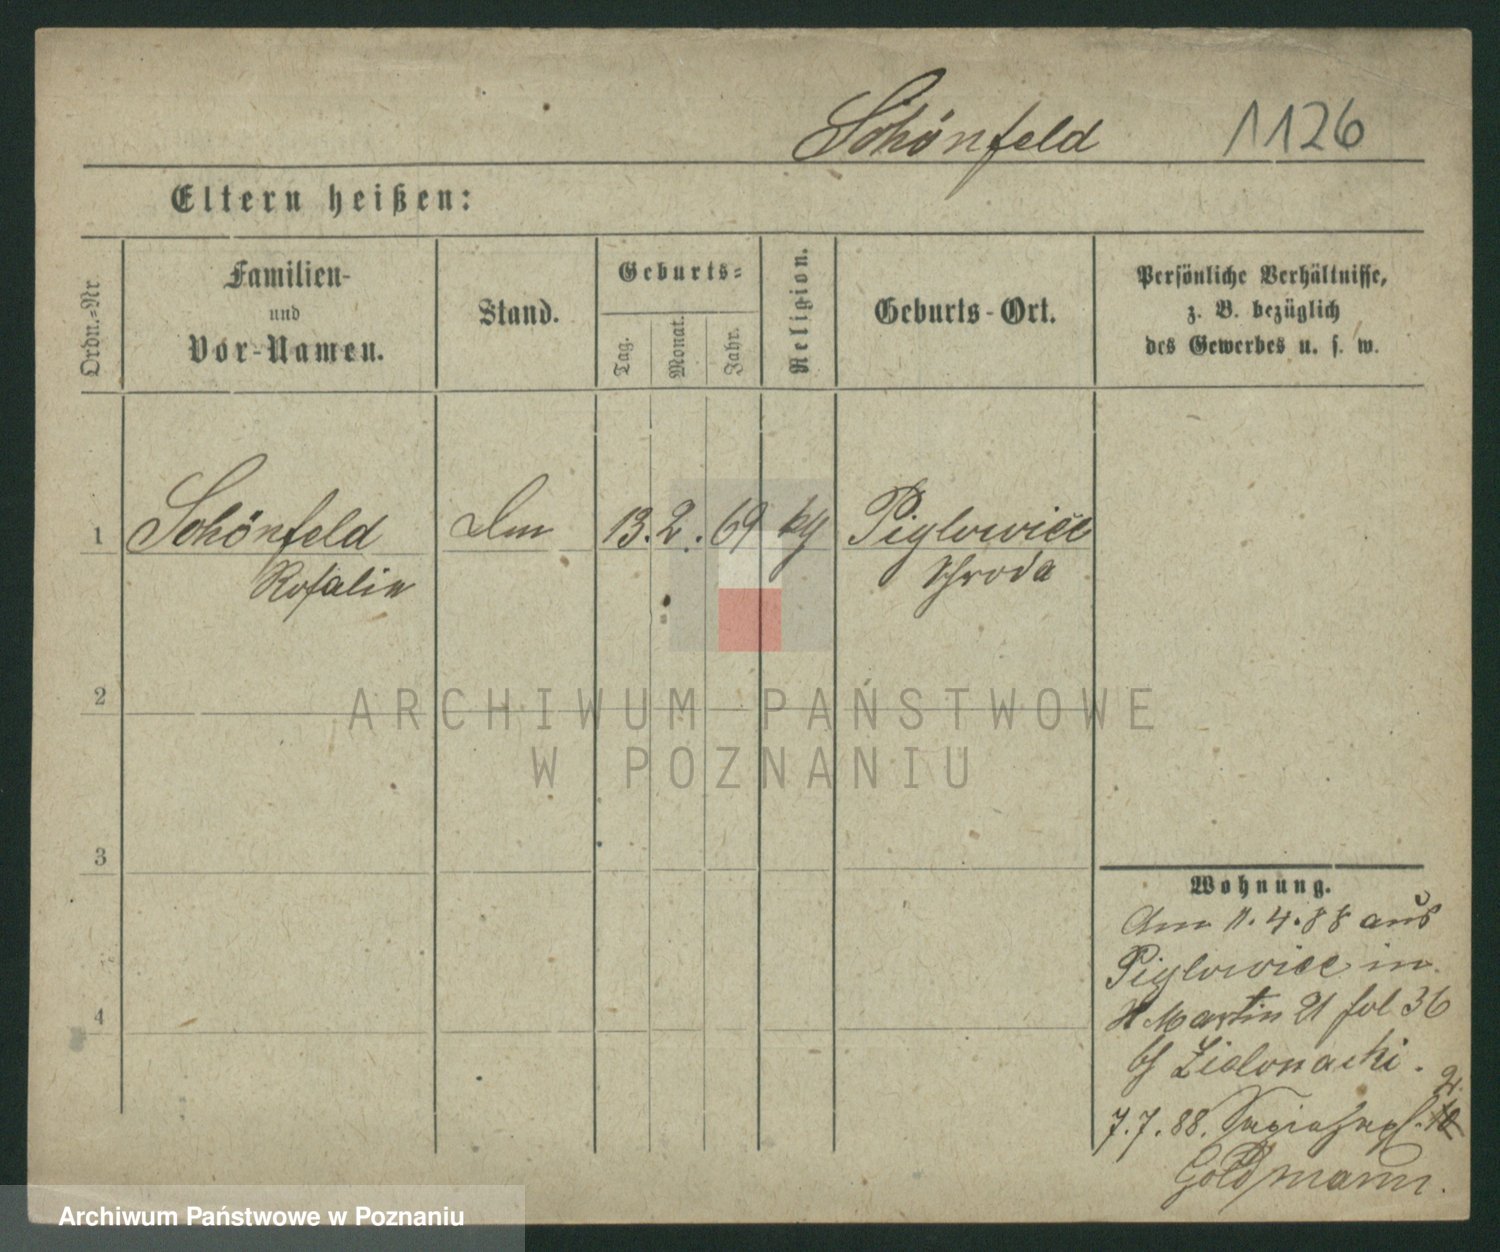 Schönfeld 1126
Eltern heißen:
Ordn.-Nr
Familien-
und
Vor-Namen.
Stand.
Geburts-
Tag.
Monat.
Jahr.
Religion.
Geburts-Ort.
Persönliche Verhältnisse,
z. B. bezüglich
des Gewerbes u. s. w.
1 Schönfeld 13. 2. 69 Piglowice
Rosalie Schroda
2
ARCHIWUM PAŃSTWOWE
W POZNANIU
3
Wohnung.
Am 11.4.88 aus
Piglowice in
Martin 21 fol 36
4
7.7.88.
Goldmann.
Archiwum Państwowe w Poznaniu